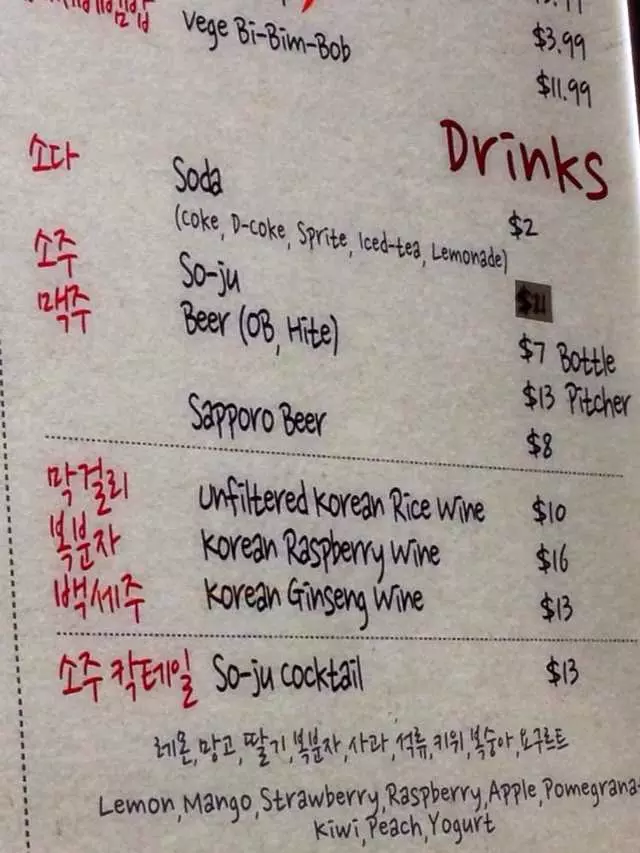 Vege Bi-Bim-Bob $3.99
$11.99
Drinks
소다 Soda $2
(coke, D-coke, Sprite, Iced-tea, Lemonade)
소주 So-ju
맥주 Beer (OB, Hite) $7 Bottle
$13 Pitcher
Sapporo Beer $8
막걸리 Unfiltered Korean Rice Wine $10
복분자 Korean Raspberry Wine $16
백세주 Korean Ginseng Wine $13
소주 칵테일 So-ju cocktail $13
레몬, 망고, 딸기, 복분자, 사과, 석류, 키위, 복숭아, 요구르트
Lemon, Mango, Strawberry, Raspberry, Apple, Pomegrana
Kiwi, Peach, Yogurt